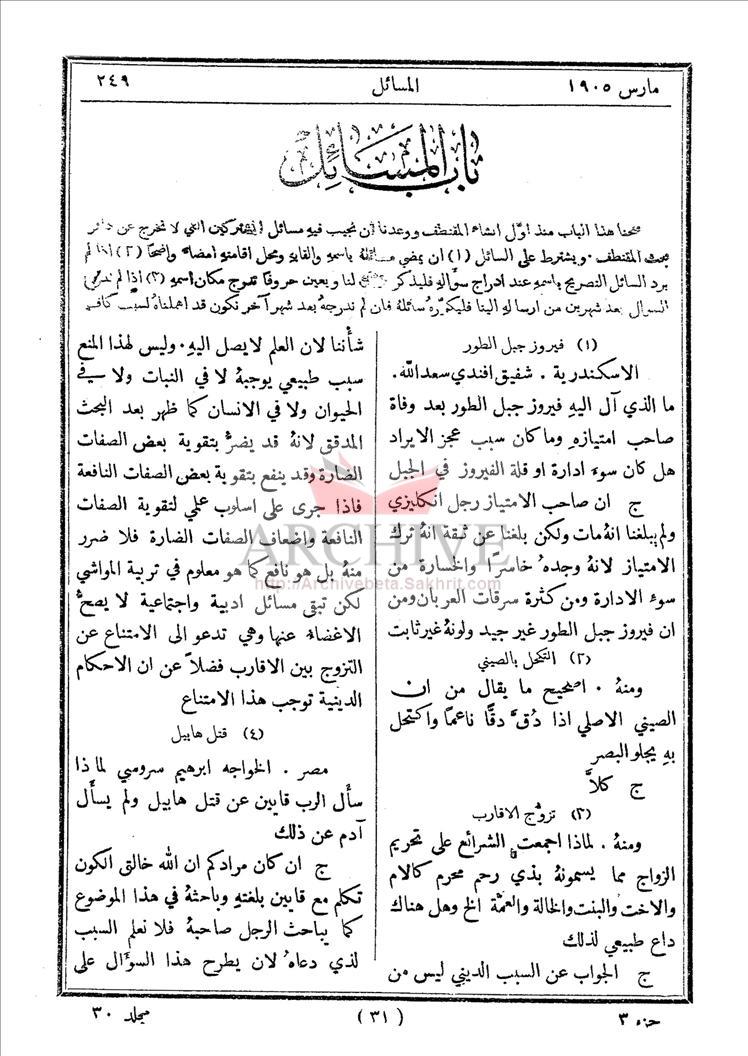 مارس ١٩٠٥
المسائل
٢٤٩
باب المسائل
فتحنا هذا الباب منذ اول انشاء المقتطف ووعدنا ان نجيب فيه مسائل المشتركين التي لا تخرج عن دائرة
بحث المقتطف . ويشترط على السائل (١) ان يمضي مسائله باسمه والقابه ومحل اقامته امضاء واضحاً (٢) اذا لم
يرد السائل التصريح باسمه عند ادراج سؤاله فليذكر ذلك لنا ويعين حروفاً تدرج مكان اسمه (٣) اذا لم ندرج
السوال بعد شهرين من ارساله الينا فليكرّره سائله فان لم ندرجه بعد شهر آخر نكون قد اهملناهُ لسبب كافٍ
(١) فيروز جبل الطور
الاسكندرية . شفيق افندي سعد الله .
ما الذي آل اليه فيروز جبل الطور بعد وفاة
صاحب امتيازه وما كان سبب عجز الايراد
هل كان سوء ادارة او قلة الفيروز في الجبل
ج ان صاحب الامتياز رجل انكليزي
ولم يبلغنا انهُ مات ولكن بلغنا عن ثقة انهُ ترك
الامتياز لانهُ وجدهُ خاسراً والخسارة من
سوء الادارة ومن كثرة سرقات العربان ومن
ان فيروز جبل الطور غير جيد ولونهُ غير ثابت
(٢) التكحل بالصيني
ومنهُ . اصحيح ما يقال من ان
الصيني الاصلي اذا دُقَّ دقًّا ناعماً واكتحل
بهِ يجلو البصر
ج كلاَّ
(٣) تزوُّج الاقارب
ومنهُ . لماذا اجمعت الشرائع على تحريم
الزواج مما يسمونهُ بذي رحم محرم كالام
والاخت والبنت والخالة والعمَّة الخ وهل هناك
داع طبيعي لذلك
ج الجواب عن السبب الديني ليس من
شأننا لان العلم لا يصل اليهِ . وليس لهذا المنع
سبب طبيعي يوجبهُ لا في النبات ولا في
الحيوان ولا في الانسان كما ظهر بعد البحث
المدقق لانهُ قد يضرُّ بتقوية بعض الصفات
الضارة وقد ينفع بتقوية بعض الصفات النافعة
فاذا جرى على اسلوب علمي لتقوية الصفات
النافعة واضعاف الصفات الضارة فلا ضرر
منهُ بل هو نافع كما هو معلوم في تربية المواشي
لكن تبقى مسائل ادبية واجتماعية لا يصحُّ
الاغضاء عنها وهي تدعو الى الامتناع عن
التزوج بين الاقارب فضلاً عن ان الاحكام
الدينية توجب هذا الامتناع
(٤) قتل هابيل
مصر . الخواجه ابرهيم سروسي لماذا
سأل الرب قايين عن قتل هابيل ولم يسأل
آدم عن ذلك
ج ان كان مرادكم ان الله خالق الكون
تكلم مع قايين بلغتهِ وباحثهُ في هذا الموضوع
كما يباحث الرجل صاحبهُ فلا نعلم السبب
لذي دعاهُ لان يطرح هذا السوَّال على
جزء ٣
(٣١)
مجلد ٣٠
ARCHIVE
http://Archivebeta.Sakhrit.com